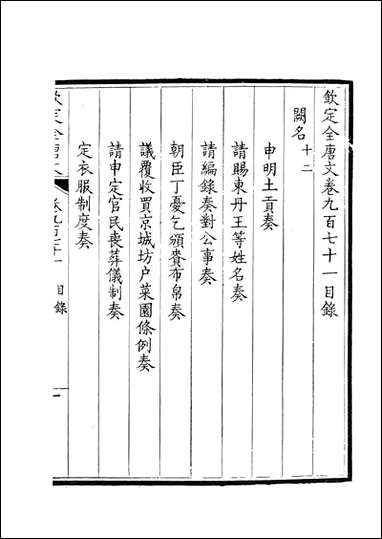 欽定全唐文卷九百七十一目錄
闕名十二
申明土貢奏
請賜東丹王等姓名奏
請編錄奏對公事奏
朝臣丁憂乞頒賚布帛奏
議覆收買京城坊户菜園條例奏
請申定官民喪葬儀制奏
定衣服制度奏
欽定全唐文
卷九百七十一 目錄
一